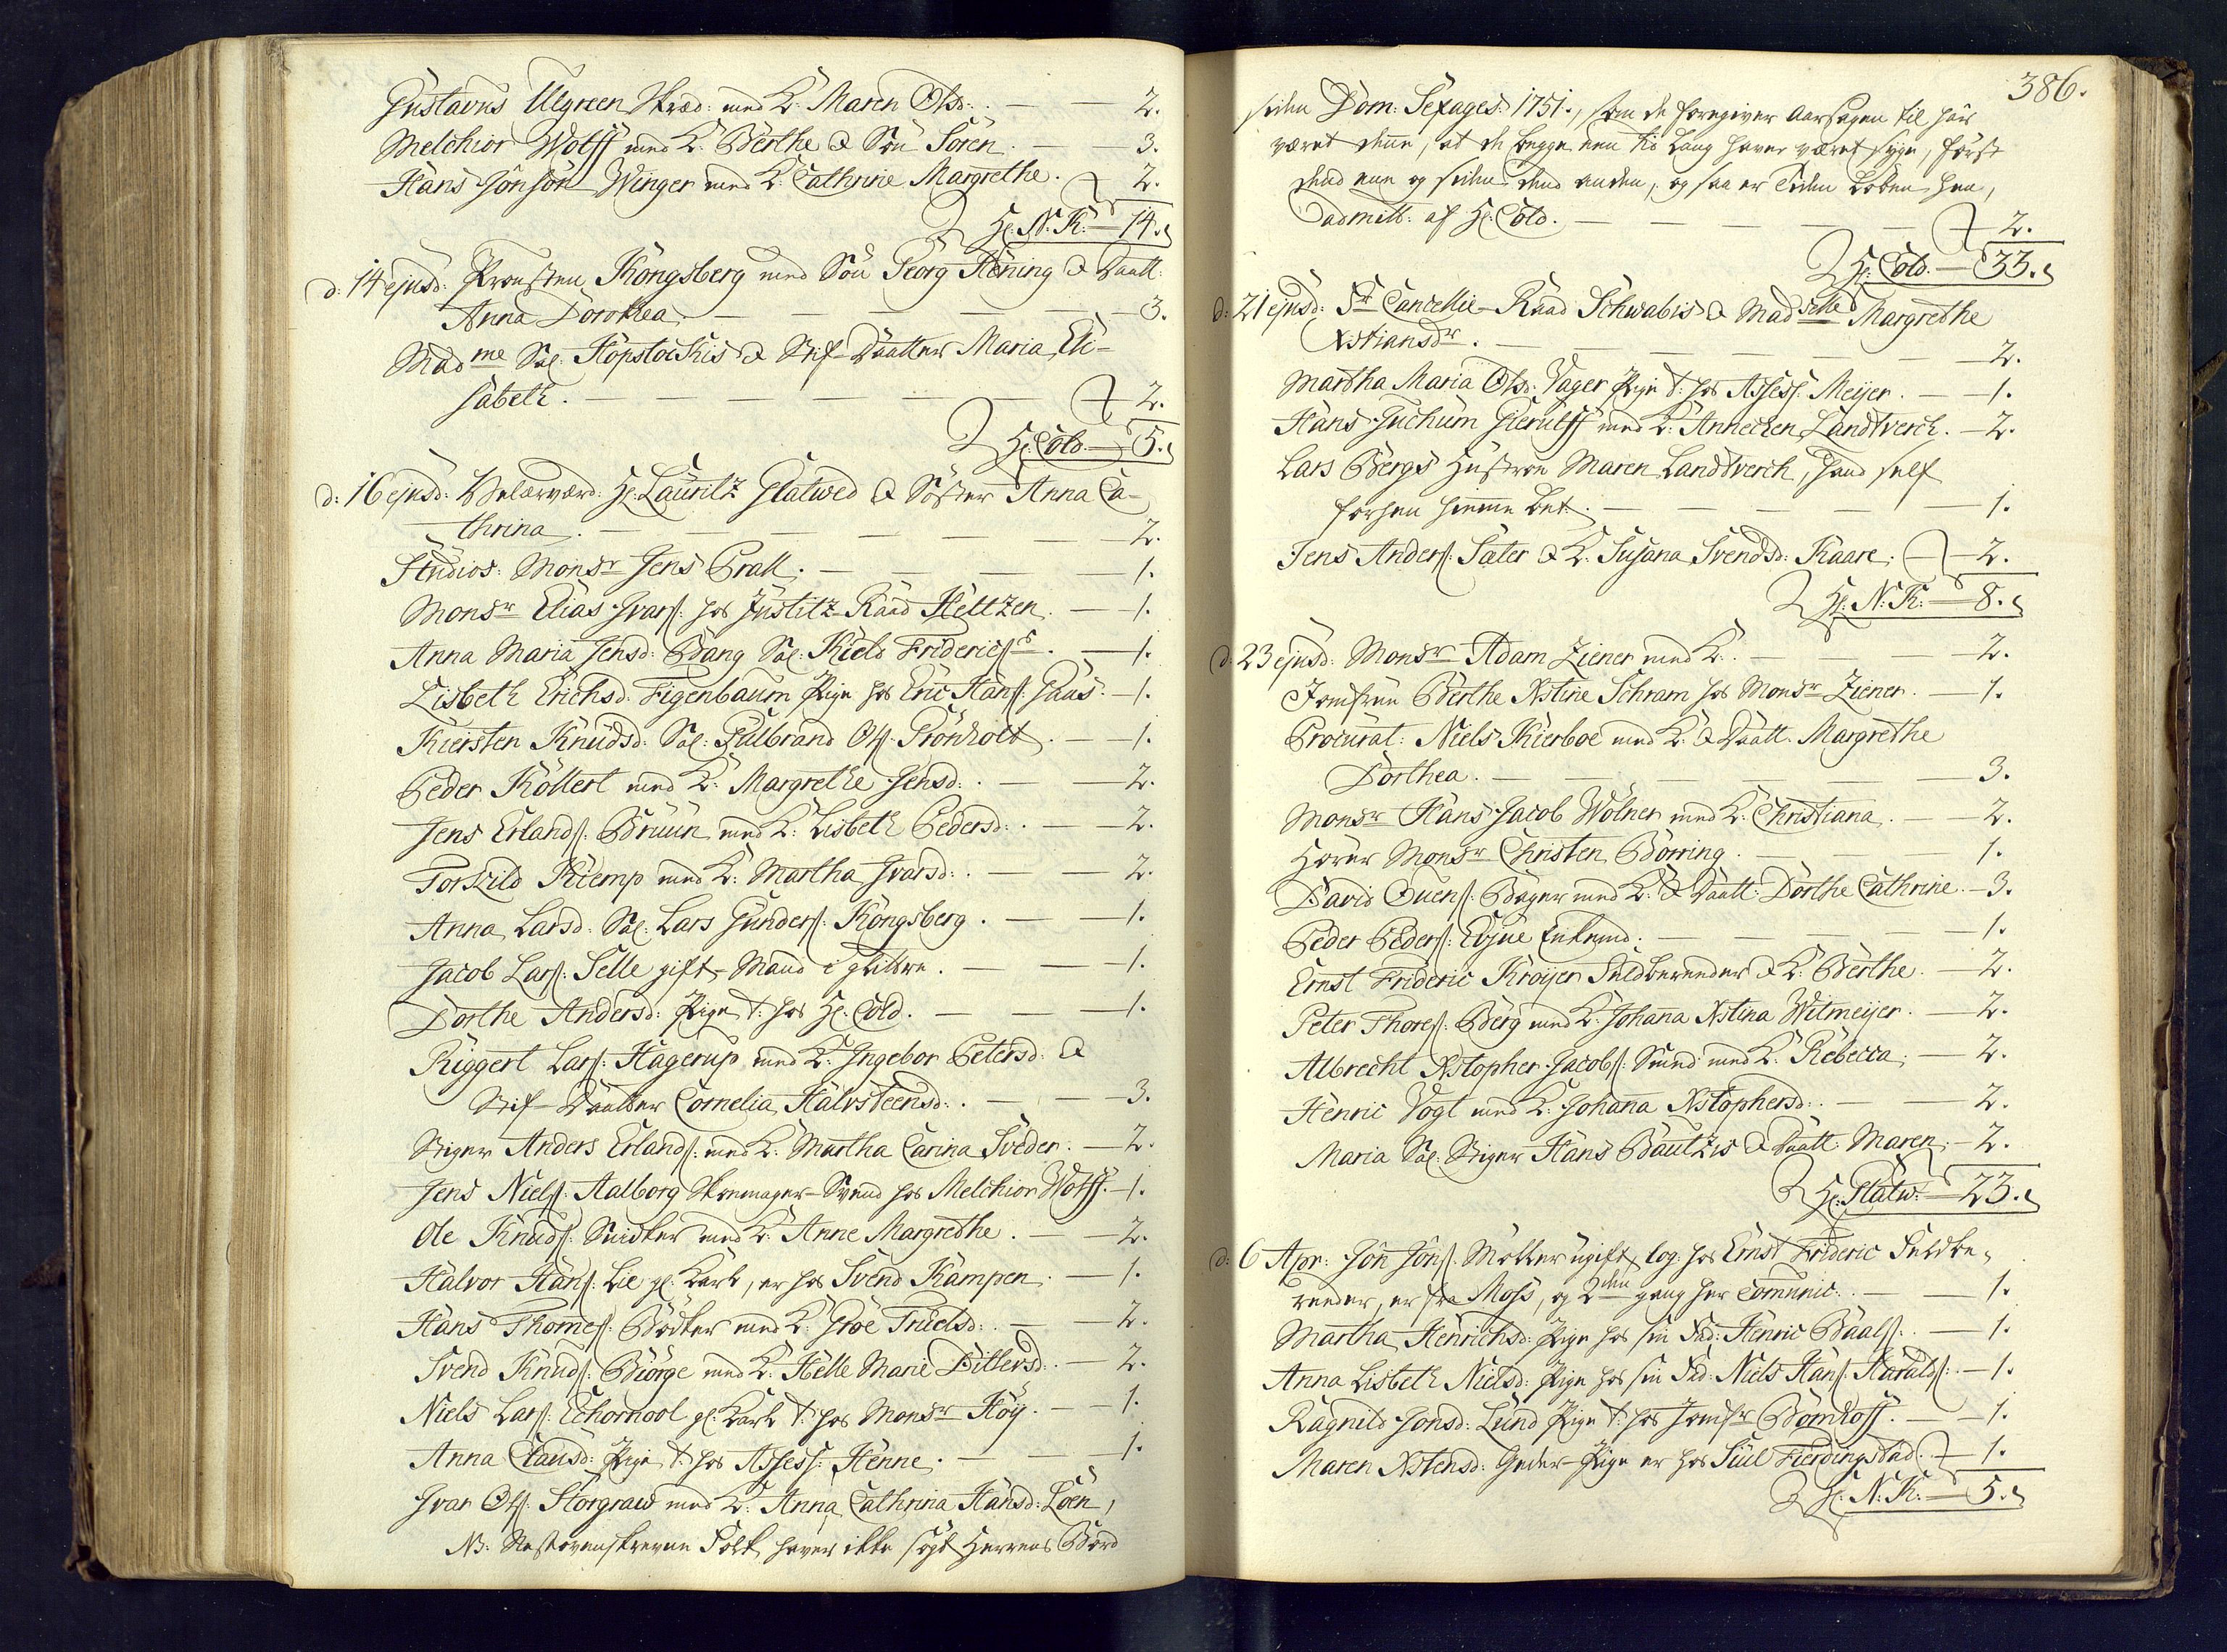 Gustavus Ulgreen Skræd: med K: Maren Olsd: . — — 2.
Melchior Wolff med K: Berthe & Søn Sören. — 3.
Hans Jönsön Winger med K: Cathrine Margrethe. 2.
Hr: N: K: — 14.
d: 14 ejusd: Provsten Kongsberg med Søn Georg Hening & Daatt:
Anna Dorothea. — — — — 3.
Madme Sal: Klopstockis & Stif-Daatter Maria Eli-
sabeth. — — — — 2.
Hr: Cold. — 5.
d: 16 ejusd: Velærværd: Hr: Lauritz Glatwed & Søster Anna Ca-
thrina. — — — — 2.
Studios: Monsr Jens Prall. — — — 1.
Monsr Elias Ivars: hos Justitz-Raad Heltzen. — 1.
Anna Maria Jensd: Bang Sal: Kield Fiderics. — 1.
Lisbeth Erichsd: Figenbaum Pige hos Eric Hans: Haus. — 1.
Kiersten Knudsd: Sal: Gulbrand Ols: Grönholt. — 1.
Peder Köllert med K: Margrethe Jensd: . — 2.
Jens Erlands: Bruun med K: Lisbeth Pedersd: . — 2.
Torkild Kiemp med K: Martha Ivarsd: . — 2.
Anna Larsd: Sal: Lars Gunders: Kongsberg. — 1.
Jacob Lars: Selle gift-Mand i — 1.
Dorthe Andersd: Pige t: hos Hr: Cold. — 1.
Riggert Lars: Hagerup med K: Ingebor Petersd: &
Stif-Daatter Cornelia Halvsteensd: . — 3.
Stiger Anders Erlands: med K: Martha Carina Sveder. — 2.
Jens Niels: Aalborg Skomager-Svend hos Melchior Wolff. — 1.
Ole Knuds: Snidker med K: Anne Margrethe. — 2.
Halvor Hans: Lie gl: Karl, er hos Svend Kampen. — 1.
Hans Thomes: Bödker med K: Groe Truelsd: . — 2.
Svend Knuds: Biörge med K: Helle Marie Ditlevsd: . — 2.
Niels Lars: Echornool gl: Karl t: hos Monsr Höy. — 1.
Anna Clausd: Pige t: hos Assess: Henne. — 1.
Ivar Ols: Storgraw med K: Anna Cathrina Hansd: Loen,
NB: Næstovenskrevne Folk haver ikke søgt Herrens Bord
386.
siden Dom: Sexages: 1751., som de foregiver Aarsagen til har
været denne, at de begge een tid lang haver været syge, først
dend eene og siden dend anden, og saa er Tiden løben hen,
admitt: af Hr: Cold. — — — 2.
Hr: Cold. — 33.
d: 21 ejusd: Sr Cancellie-Raad Schwabis & Madselle Margrethe
Xstiansdr. — — — — 2.
Martha Maria Olsd: Vager Pige t: hos Assess: Meyer. — 1.
Hans Juchum Gierulff med K: Annechen Landtverch. — 2.
Lars Bergs Hustroe Maren Landtverch, Hand self
forhen hiemme bet: . — — — 1.
Jens Anders: Sater & K: Susana Svendsd: Kaare. 2.
Hr: N: K: — 8.
d: 23 ejusd: Monsr Adam Ziener med K: . — — 2.
Jomfrue Berthe Xstine Schram hos Monsr Ziener. — 1.
Procurat: Niels Kierboe med K: & Daatt: Margrethe
Dorthea. — — — — 3.
Monsr Hans Jacob Wölner med K: Christiana. — 2.
Hører Monsr Christen Börring. — — 1.
David Ouens: Bager med K: & Daatt: Dorthe Cathrine. — 3.
Peder Peders: Evjue Enkemd. — — 1.
Ernst Frideric Kroyer Guldberender & K: Berthe. — 2.
Peter Thores: Berg med K: Johana Xstina Witmeyer. — 2.
Albrecht Xstopher Jacobs: Smed med K: Rebecca. — 2.
Henric Vogt med K: Johana Xstophersd: . — 2.
Maria Sal: Stiger Hans Bautzis & Daatt: Maren. — 2.
Hr: Glatw: — 23.
d: 6 Apr: Jön Jöns: Møller ugift, log: hos Ernst Frideric Guldbe-
render, er fra Moss, og 2den gang her Communic: . — 1.
Martha Henrichsd: Pige hos sin Fad: Henric Baals: . — 1.
Anna Lisbeth Nielsd: Pige hos sin Fad: Niels Hans: Haralds: . — 1.
Ragnild Jonsd: Lund Pige t: hos Jomfr Bomhoff. — 1.
Maren Xstensd: Pige er hos Siul Fierdingstad. 1.
Hr: N: K: — 5.